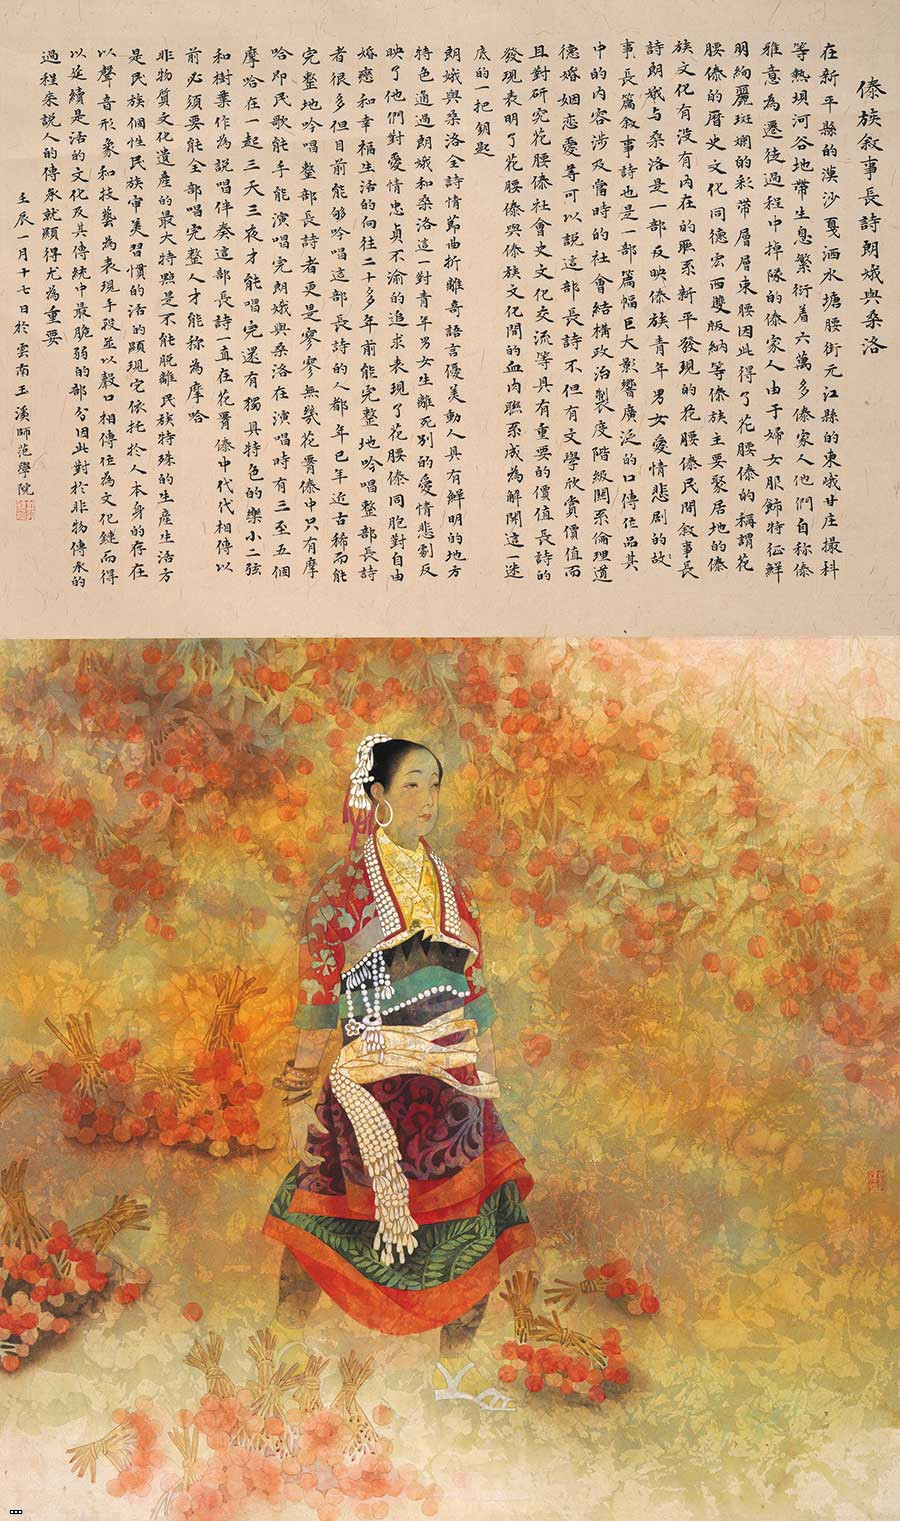 傣族叙事長詩朗娥與桑洛
在新平縣的漠沙戛洒水塘腰街元江縣的東峨甘庄撮科
等熱埧河谷地帶生息繁衍着六萬多傣家人他們自称傣
雅意為遷徒過程中掉隊的傣家人由于婦女服飾特征鮮
明絢麗斑斕的彩带層層束腰因此得了花腰傣的稱謂花
腰傣的曆史文化同德宏西雙版納等傣族主要聚居地的傣
族文化有没有内在的联系新平發現的花腰傣民間叙事長
詩朗娥与桑洛是一部反映傣族青年男女愛情悲剧的故
事長篇叙事詩也是一部篇幅巨大影響廣泛的口傳作品其
中的内容涉及當時的社會結構政治製度階級関系倫理道
德婚姻恋愛等可以説這部長詩不但有文學欣賞價值而
且對研究花腰傣社會史文化交流等具有重要的價值長詩的
發現表明了花腰傣與傣族文化間的血肉联系成為解開這一迷
底的一把鈅匙
朗娥與桑洛全詩情節曲折離奇語言優美動人具有鮮明的地方
特色通過朗娥和桑洛這一對青年男女生離死别的愛情悲劇反
映了他們對愛情忠貞不渝的追求表現了花腰傣同胞對自由
婚戀和幸福生活的向往二十多年前能完整地吟唱整部長詩
者很多但目前能够吟唱這部長詩的人都年已年近古稀而能
完整地吟唱整部長詩者更是寥寥無幾花腰傣中只有摩
哈即民歌能手能演唱完朗娥與桑洛在演唱時有三至五個
摩哈在一起三天三夜才能唱完還有獨具特色的樂小二弦
和樹葉作為説唱伴奏這部長詩一直在花腰傣中代代相傳以
前必須要能全部唱完整人才能称為摩哈
非物質文化遺産的最大特點是不能脱離民族特殊的生産生活方
是民族個性民族审美習慣的活的顯現它依托於人本身的存在
以聲音形象和技藝為表現手段並以殼口相傳作為文化鏈而得
以延續是活的文化及其傳統中最脆弱的部分因此對於非物傳承的
過程來説人的傳承就顯得尤為重要
壬辰一月十七日於雲南玉溪師范學院